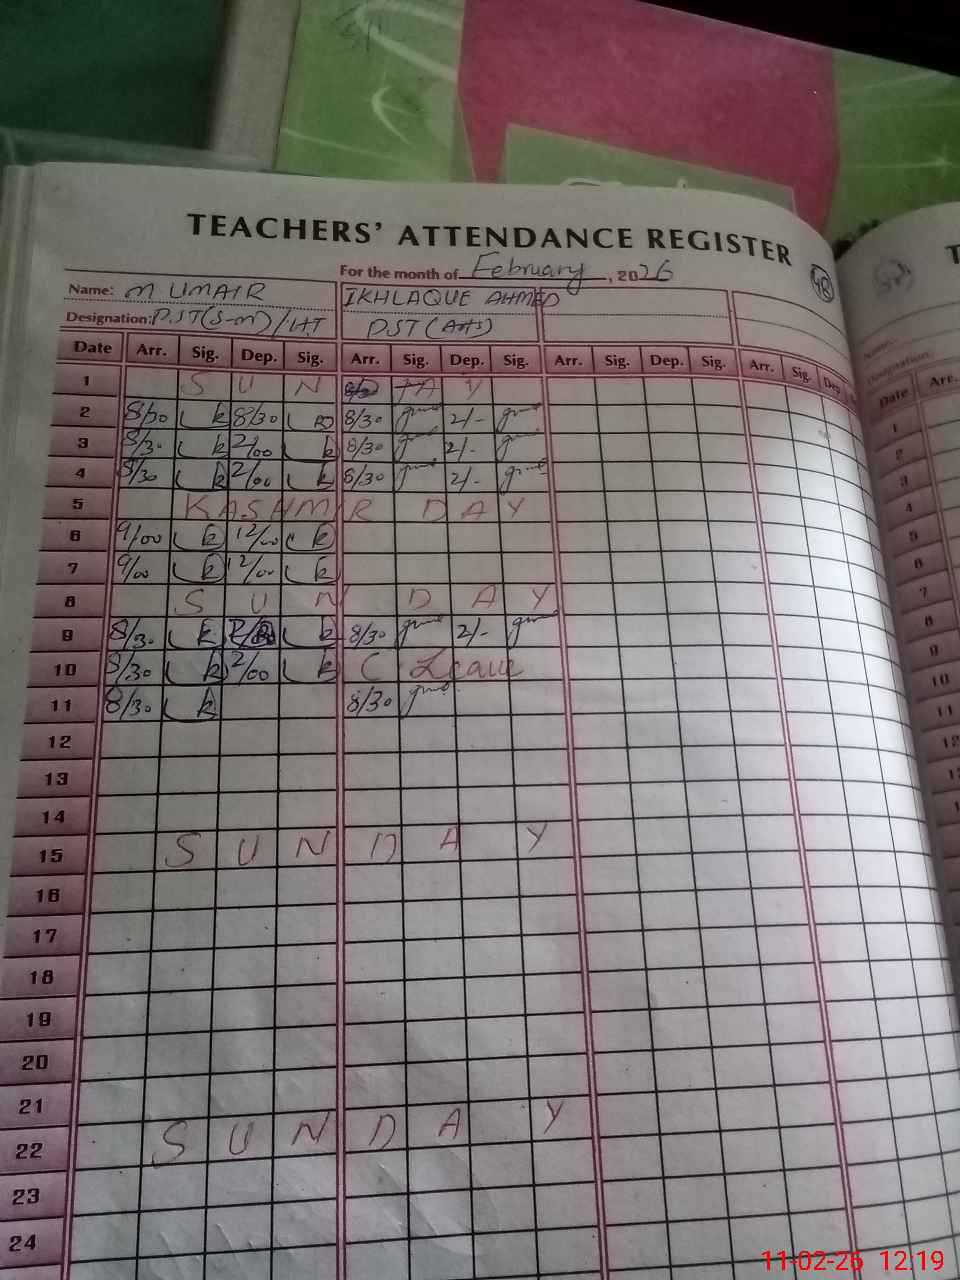 TEACHERS' ATTENDANCE REGISTER
For the month of February, 2026
48
Name: M UMAIR IKHLAQUE AHMED
Designation: PST(S-M)/HT PST (Arts)
Date Arr. Sig. Dep. Sig. Arr. Sig. Dep. Sig. Arr. Sig. Dep. Sig. Arr. Sig. Dep
1 S U N D A Y
2 8/30 8/30 8/30 2/-
3 8/30 2/00 8/30 2/-
4 8/30 2/00 8/30 2/-
5 KASHMIR DAY
6 9/00 12/00
7 9/00 12/00
8 S U N D A Y
9 8/30 8/30 2/-
10 8/30 2/00 C Leave
11 8/30 8/30
12
13
14
15 S U N D A Y
16
17
18
19
20
21
22 S U N D A Y
23
24
T
Name:
Designation:
Date Arr.
1
2
3
4
5
6
7
8
9
10
11
12
11-02-26 12:19